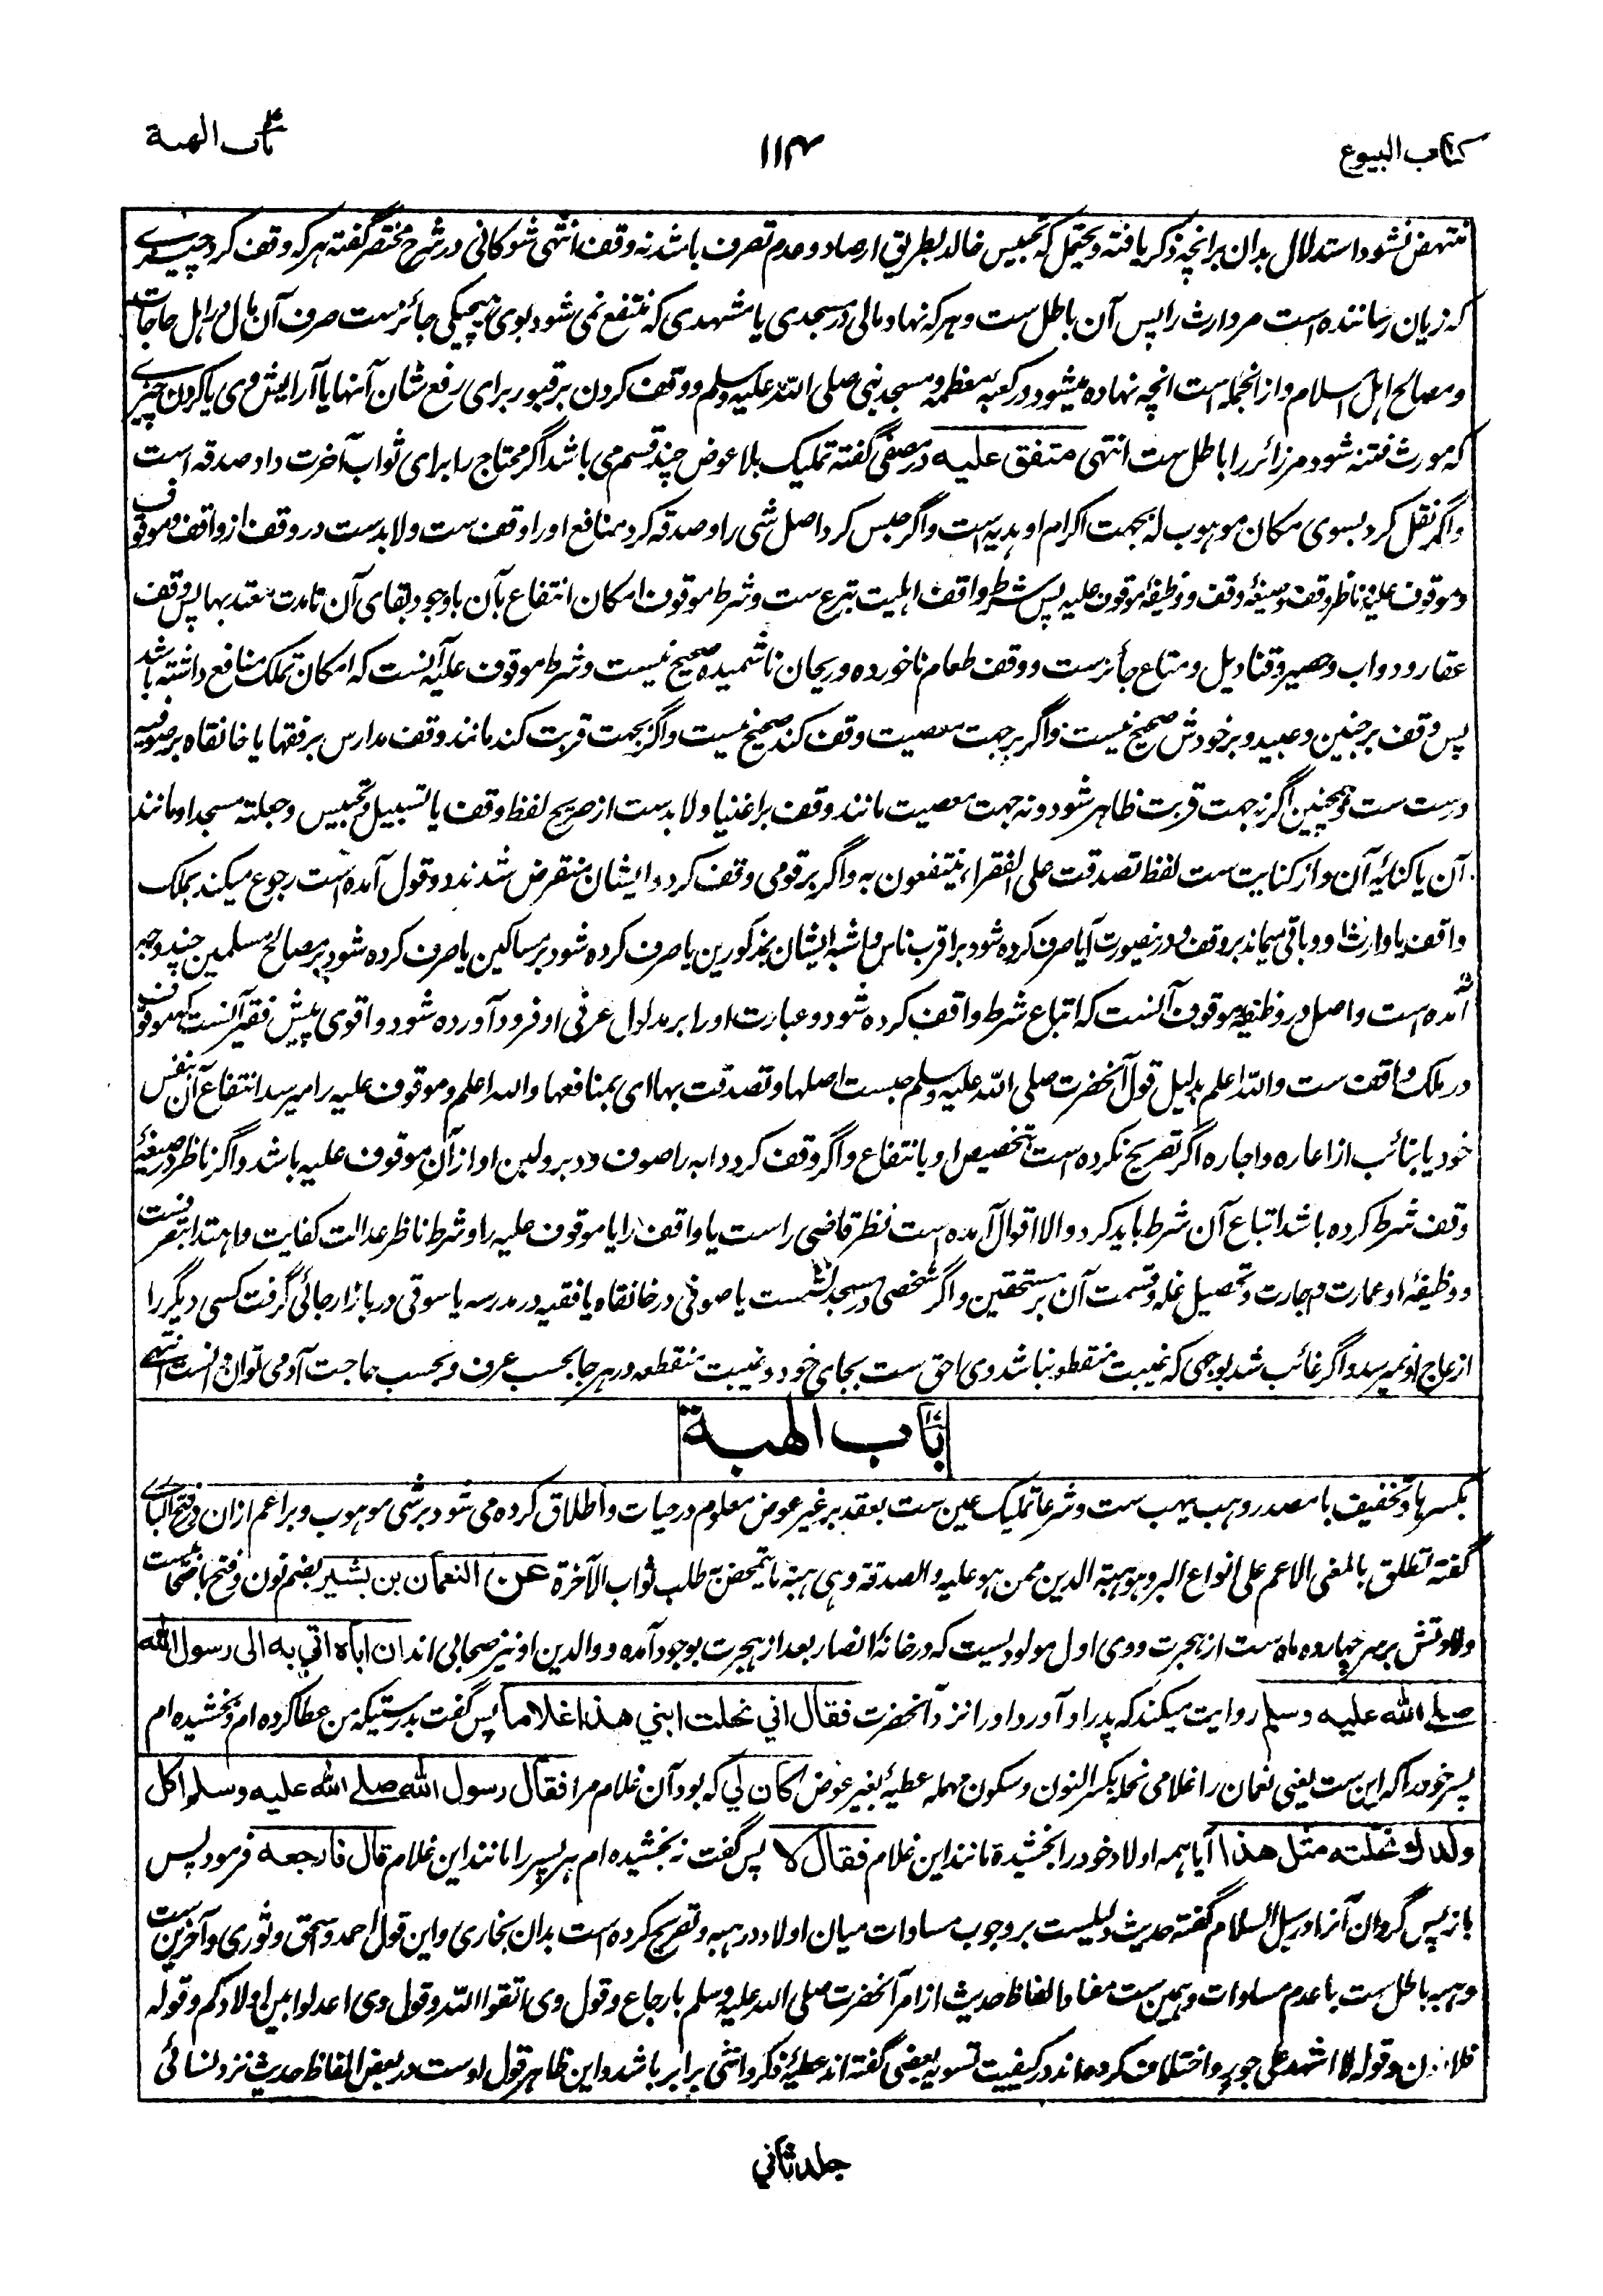 كتاب البيوع
۱۱۴
باب الهبة
منتهض نشود استدلال بدان برانچه ذکر یافته و یحتمل که تحبیس خالد بطریق ارصاد و عدم تصرف باشد نه وقف انتهی شوکانی در شرح مختصر گفته هر که وقف کرد چیزے
که زیان رساننده است مر وارث را پس آن باطل ست و هر که نهاد مالی در مسجدی یا مشهدی که منتفع نمی شود بوی هیچیکی جائزست صرف آن مال در اهل حاجات
و مصالح اهل اسلام و ازانجمله است انچه نهاده میشود در کعبه معظمه و مسجد نبی صلی الله علیه وسلم و وقف کردن بر قبور برای رفع شان آنها یا آرایش وی یا کردن چیزے
که مورث فتنه شود مر زائر را باطل ست انتهی متفق علیه در مصفی گفته تملیک بلا عوض چند قسم می باشد اگر محتاج را برای ثواب آخرت داد صدقه است
و اگر نقل کرد بسوی مکان موهوب له بجهت اکرام او هدیه است و اگر حبس کرد اصل شی را و صدقه کرد منافع او را وقف ست و لابدست در وقف از واقف و موقوف
و موقوف علیه و ناظر وقف و صیغهٔ وقف و وظیفهٔ موقوف علیه پس شرط واقف اهلیت تبرع ست و شرط موقوف امکان انتفاع بآن باوجود بقای آن تا مدت معتد بها پس وقف
عقار و دواب و حصیر و قنادیل و متاع جائزست و وقف طعام ناخورده و ریحان ناشمیده صحیح نیست و شرط موقوف علیه آنست که امکان تملک منافع داشته باشد
پس وقف بر جنین و عبید و بر خودش صحیح نیست و اگر بر جهت معصیت وقف کند صحیح نیست و اگر بجهت قربت کند مانند وقف مدارس بر فقها یا خانقاه بر صوفیه
درست ست و همچنین اگر نه جهت قربت ظاهر شود و نه جهت معصیت مانند وقف بر اغنیا و لابدست از صریح لفظ وقف یا تسبیل و تحبیس و جعلته مسجدا و مانند
آن یا کنایهٔ آن و از کنایت ست لفظ تصدقت علی الفقراء ینتفعون به و اگر بر قومی وقف کرد و ایشان منقرض شدند دو قول آمده است رجوع میکند بملک
واقف یا وارث او و باقی میماند بر وقف و درینصورت آیا صرف کرده شود بر اقرب ناس و اشبه ایشان بمذکورین یا صرف کرده شود بر مساکین یا صرف کرده شود بر مصالح مسلمین چند وجه
آمده است و اصل در وظیفه موقوف آنست که اتباع شرط واقف کرده شود و عبارت او را بر مدلول عرفی او فرود آورده شود و اقوی پیش فقیر آنست که موقوف
در ملک واقف ست والله اعلم بدلیل قول آنحضرت صلی الله علیه وسلم حبست اصلها و تصدقت بها ای بمنافعها والله اعلم و موقوف علیه را میرسد انتفاع آن بنفس
خود یا بنائب از اعاره و اجاره اگر تصریح نکرده است بتخصیص او بانتفاع و اگر وقف کرد دابه را صوف و وبر و لبن او از آن موقوف علیه باشد و اگر ناظر در صیغهٔ
وقف شرط کرده باشد اتباع آن شرط باید کرد و الا اقوال آمده است نظر قاضی راست یا واقف را یا موقوف علیه را و شرط ناظر عدالت کفایت و اهتدا بتصرفست
و وظیفهٔ او عمارت و اجارت و تحصیل غله و قسمت آن بر مستحقین و اگر شخصی در مسجد نشست یا صوفی در خانقاه یا فقیه در مدرسه یا سوقی در بازار جائی گرفت کسی دیگر را
ازعاج او نمیرسد و اگر غائب شد بوجهی که غیبت منقطعه نباشد وی احق ست بجای خود و غیبت منقطعه در هر جا بحسب عرف و بحسب حاجت آدمی توان دانست انتهی
باب الهبة
بکسر ها و تخفیف با مصدر وهب یهب ست و شرعا تملیک عین ست بعقد بر غیر عوض معلوم در حیات و اطلاق کرده می شود بر شی موهوب و بر اعم ازان در فتح الباری
گفته تطلق بالمعنی الاعم علی انواع البر و هو هبة الدین ممن هو علیه والصدقة وهی هبة ما یتمحض به طلب ثواب الآخرة عن النعمان بن بشیر بضم نون و فتح با صحابیست
ولادتش بر سر چهارده ماه ست از هجرت و وی اول مولودیست که در خانهٔ انصار بعد از هجرت بوجود آمده و والدین او نیز صحابی اند ان اباه اتی به الی رسول الله
صلے الله علیه وسلم روایت میکند که پدر او آورد او را نزد آنحضرت فقال انی نحلت ابنی هذا غلاما پس گفت بدرستیکه من عطا کرده ام و بخشیده ام
پسر خود را که این ست یعنی نعمان را غلامی نحله بکسر النون و سکون مهمله عطیهٔ بغیر عوض کان لی که بود آن غلام مرا فقال رسول الله صلے الله علیه وسلم اکل
ولدك نحلته مثل هذا آیا همه اولاد خود را بخشیدهٔ مانند این غلام فقال لا پس گفت نه بخشیده ام هر پسر را مانند این غلام قال فارجعه فرمود پس
باز پس گردان آنرا در سبل السلام گفته حدیث دلیلست بر وجوب مساوات میان اولاد در هبه و تصریح کرده است بدان بخاری و این قول احمد و اسحق و ثوری و آخرین ست
و هبه باطل ست با عدم مساوات و همین ست مفاد الفاظ حدیث از امر آنحضرت صلی الله علیه وسلم بارجاع و قول وی اتقوا الله و قول وی اعدلوا بین اولادکم و قوله
فلا اذن و قوله لا اشهد علی جور و اختلاف کرده اند در کیفیت تسویه بعضی گفته اند عطیهٔ ذکر و انثی برابر باشد و این ظاهر قول اوست در بعض الفاظ حدیث نزد نسائی
جلد ثانی